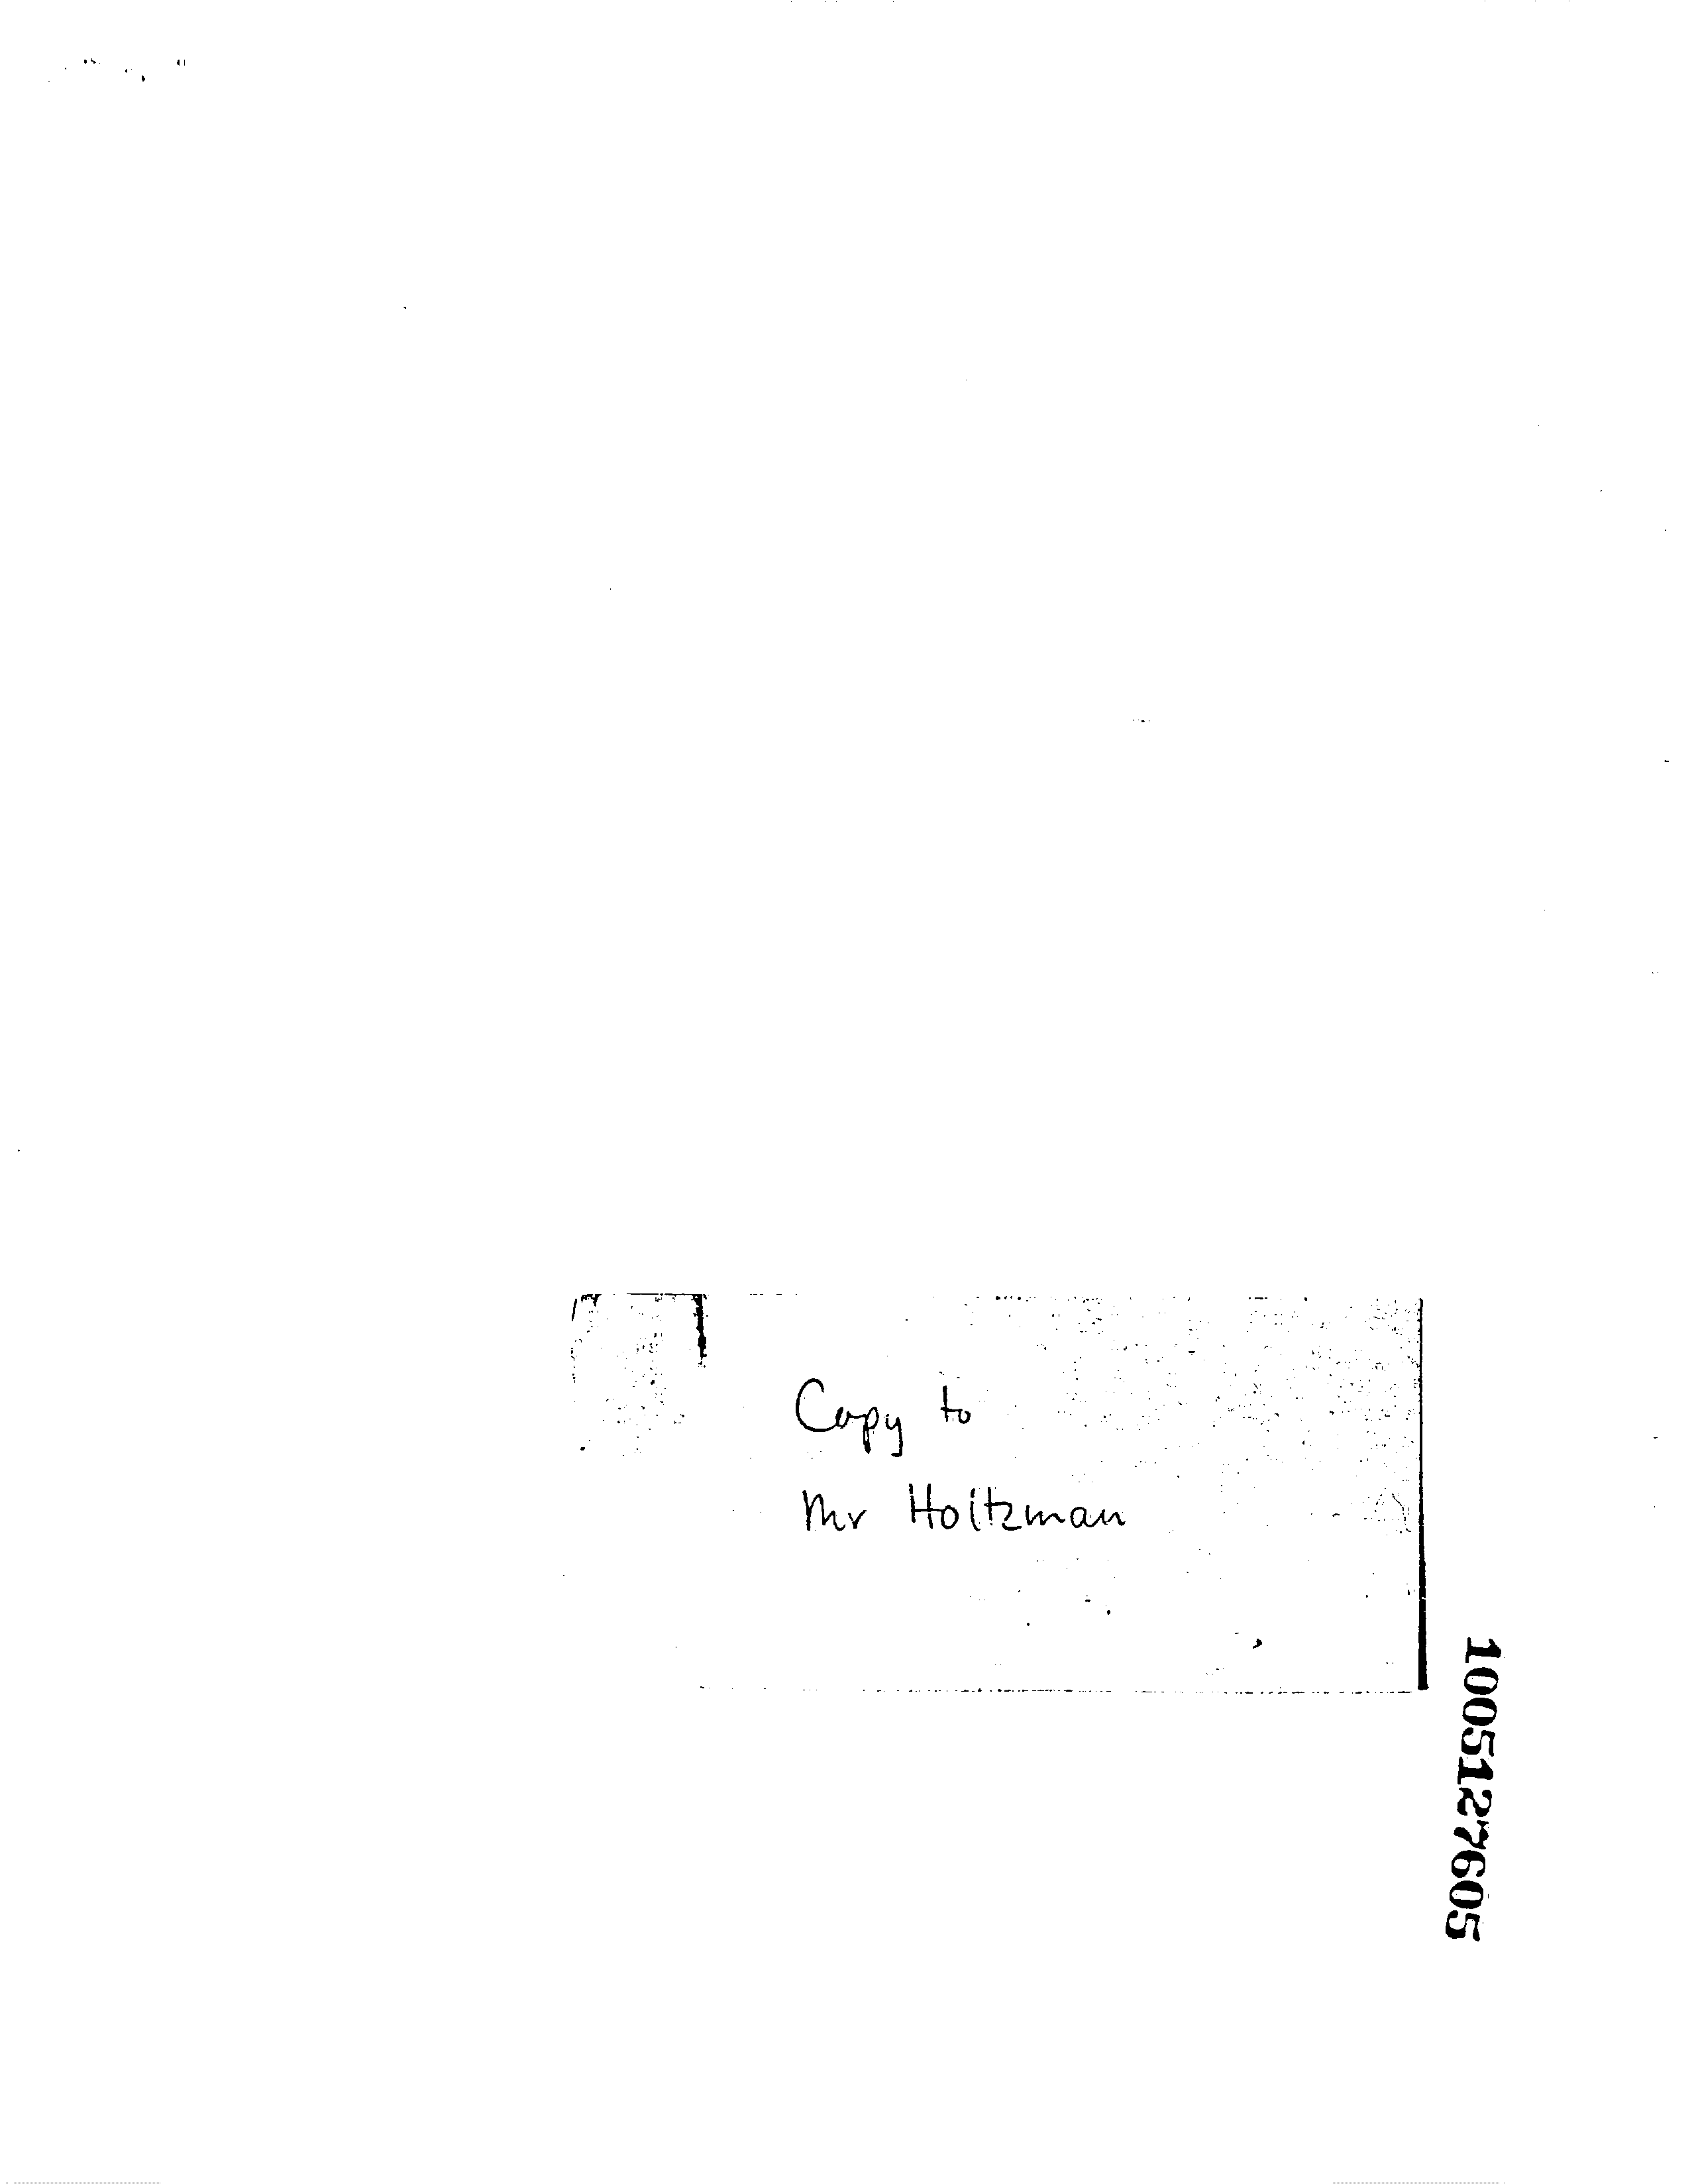 Copy to
Mr Holtzman
1005127605